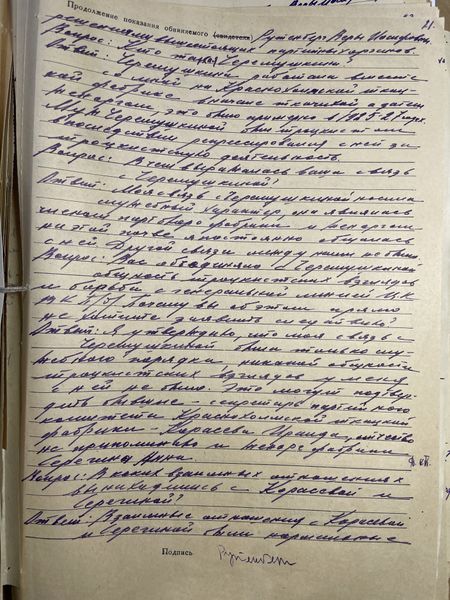 Продолжение показания обвиняемого (свидетеля) Рутенберг Веры Иосифовны
21
решениями вышестоящих партийных органов.
Вопрос: Кто такая Черемушкина?
Ответ: Черемушкина работала вместе
со мной на Краснохолмской ткац-
кой фабрике вначале ткачихой, а затем
это было примерно в 1925-27 годах.
Муж Черемушкиной был троцкистом
впоследствии репрессирован с ней за
троцкистскую деятельность.
Вопрос: В чем выражалась ваша связь
с Черемушкиной?
Ответ: Моя связь с Черемушкиной носила
служебный характер, она являлась
членом партбюро фабрики и
на этой почве я постоянно общалась
с ней. Другой связи между нами не было.
Вопрос: Вас объединяло с Черемушкиной
общность троцкистских взглядов
и борьба с генеральной линией ЦК
ВКП/б/. Почему вы об этом прямо
не хотите заявить следствию?
Ответ: Я утверждаю, что моя связь с
Черемушкиной была только слу-
жебного порядка, никакой общности
троцкистских взглядов у меня
с ней не было. Это могут подтвер-
дить бывшие секретарь партийного
комитета Краснохолмской ткацкой
фабрики - Карасева Ираида, отчество
не припоминаю и фабрики
Серегина Нина
Вопрос: В каких взаимных отношениях
вы находились с Карасевой и
Серегиной?
Ответ: Взаимные отношения с Карасевой
и Серегиной были нормальные
Подпись Рутенберг